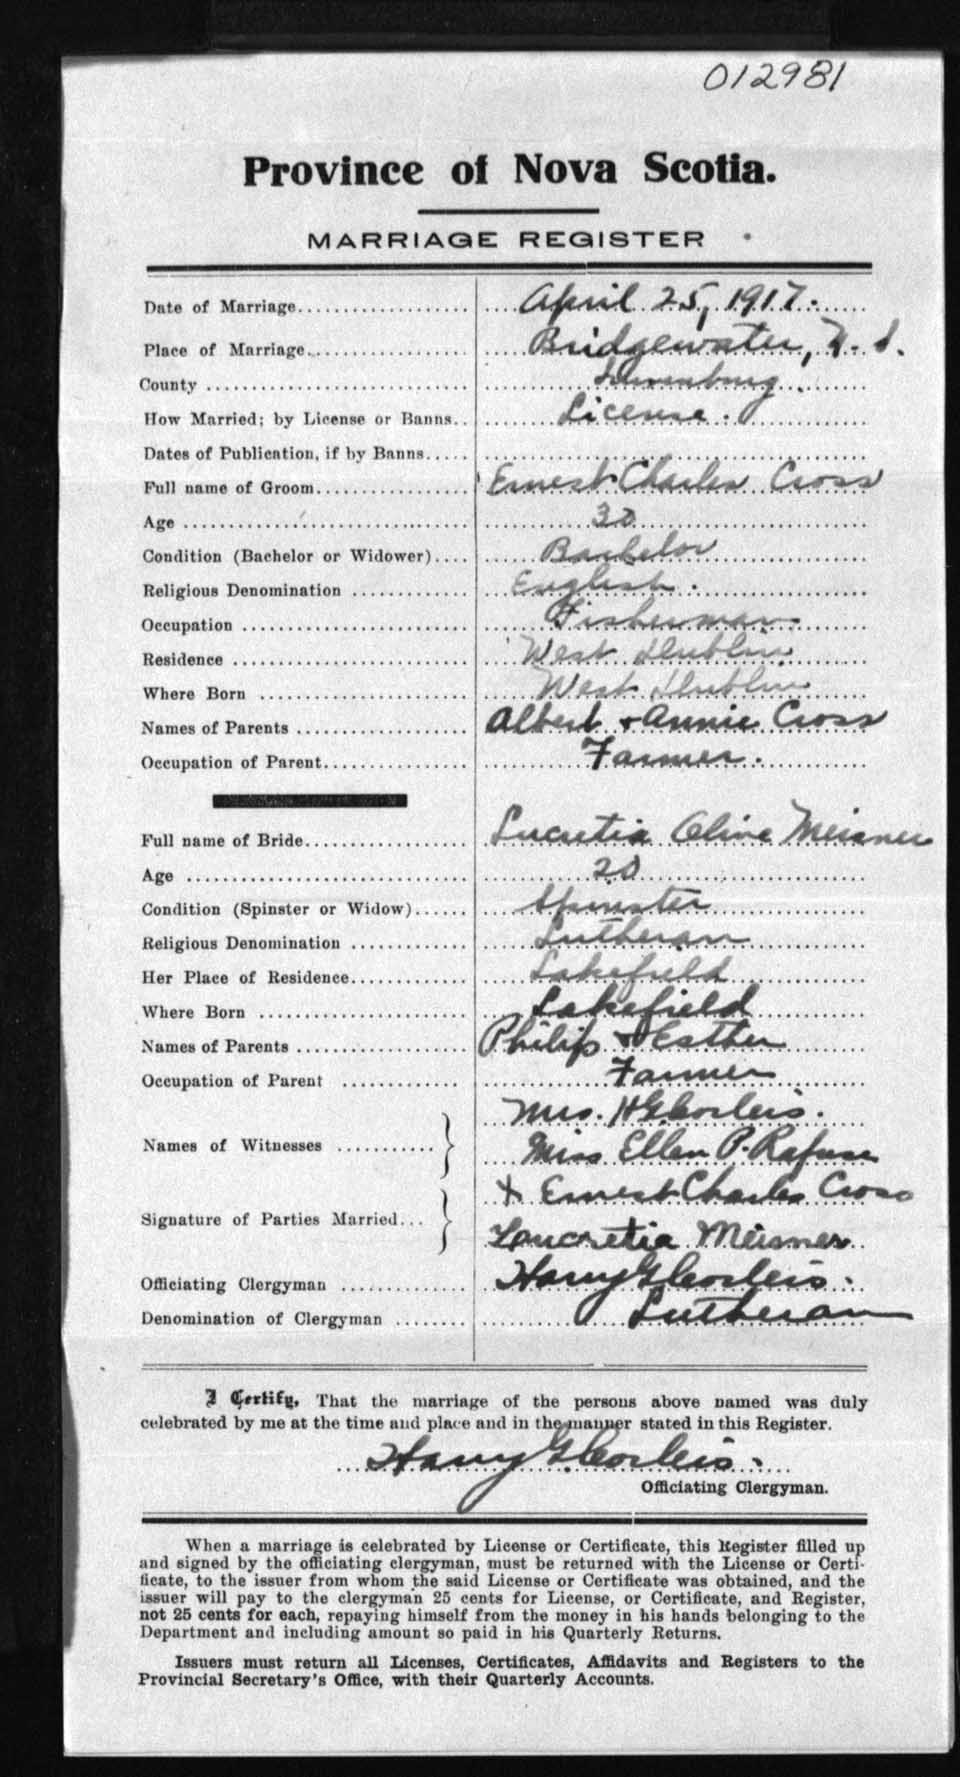 012981
Province of Nova Scotia.
MARRIAGE REGISTER
Date of Marriage.................... April 25, 1917.
Place of Marriage.................... Bridgewater, N. S.
County .................... Lunenburg.
How Married; by License or Banns.. License.
Dates of Publication, if by Banns.....
Full name of Groom.................... Ernest Charles Cross
Age .................... 30
Condition (Bachelor or Widower).... Bachelor
Religious Denomination .................... English.
Occupation .................... Fisherman
Residence .................... West Dublin
Where Born .................... West Dublin
Names of Parents .................... Albert & Annie Cross
Occupation of Parent.................... Farmer.
Full name of Bride.................... Lucretia Olive Meisner
Age .................... 20
Condition (Spinster or Widow)...... Spinster
Religious Denomination .................... Lutheran
Her Place of Residence.................... Lakefield
Where Born .................... Lakefield
Names of Parents .................... Philip & Esther
Occupation of Parent .................... Farmer
Mrs. H G Corleis.
Names of Witnesses ...........
Miss Ellen P. Rafuse
x Ernest Charles Cross
Signature of Parties Married...
Loucretia Meisner
Officiating Clergyman .................... Harry G Corleis.
Denomination of Clergyman ........ Lutheran
I Certify, That the marriage of the persons above named was duly
celebrated by me at the time and place and in the manner stated in this Register.
Harry G Corleis.
Officiating Clergyman.
When a marriage is celebrated by License or Certificate, this Register filled up
and signed by the officiating clergyman, must be returned with the License or Certi-
ficate, to the issuer from whom the said License or Certificate was obtained, and the
issuer will pay to the clergyman 25 cents for License, or Certificate, and Register,
not 25 cents for each, repaying himself from the money in his hands belonging to the
Department and including amount so paid in his Quarterly Returns.
Issuers must return all Licenses, Certificates, Affidavits and Registers to the
Provincial Secretary's Office, with their Quarterly Accounts.